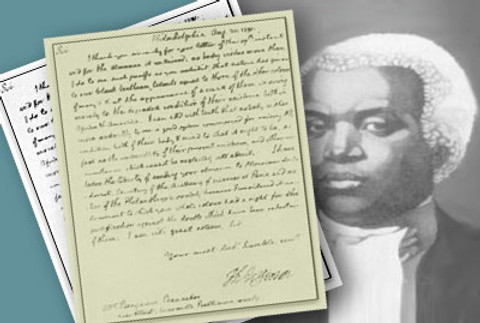 Philadelphia Aug. 30. 1791.
Sir
I thank you sincerely for your letter of the 19th instant
and for the Almanac it contained. no body wishes more than
I do to see such proofs as you exhibit, that nature has given
to our black brethren, talents equal to those of the other colours
of men, & that the appearance of a want of them is owing
merely to the degraded condition of their existence both in
Africa & America. I can add with truth that no body wishes
more ardently to see a good system commenced for raising the
condition both of their body & mind to what it ought to be, as
fast as the imbecillity of their present existence, and other
circumstance which cannot be neglected, will admit. I have
taken the liberty of sending your almanac to Monsieur de
Condorcet, Secretary of the Academy of sciences at Paris, and
of the Philanthropic society because I considered it as a
document to which your whole colour had a right for their
justification against the doubts which have been entertained
of them. I am with great esteem, Sir
Your most obedt. humble servt.
Th. Jefferson
Benjamin Banneker
near Ellicot's